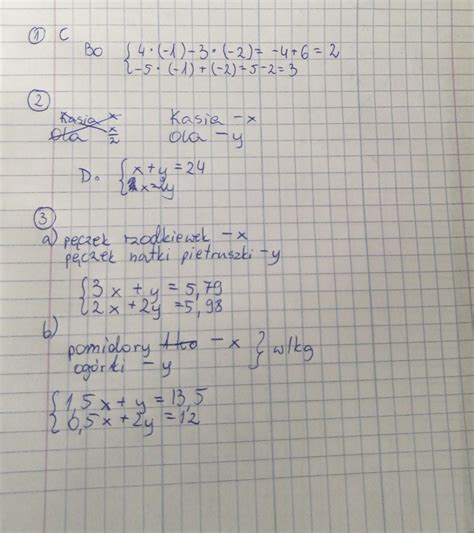 ① C
Bo { 4·(-1)-3·(-2)= -4+6=2
-5·(-1)+(-2)=5-2=3
②
Kasia x
Ola x/2
Kasia - x
Ola - y
D. { x+y=24
x=2y
③
a) pęczek rzodkiewek - x
pęczek natki pietruszki - y
{ 3x+y=5,79
2x+2y=5,98
b)
pomidory - x } w 1kg
ogórki - y
{ 1,5x+y=13,5
0,5x+2y=12